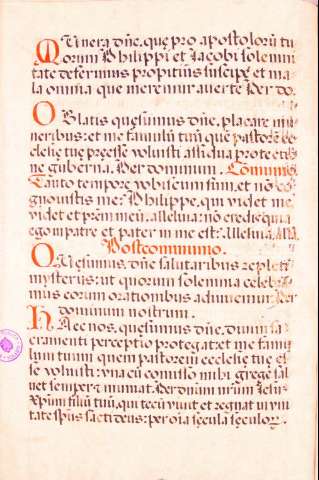 Munera dñe, quę pro apostolorũ tu
orum Philippi et Jacobi solemni
tate deferimus propitius suscipe et ma
la omnia que meremur averte Per do.
Oblatis quęsumus dñe, placare mu
neribus: et me famulũ tuũ quẽ pastorẽ ec
clesię tuę pręesse voluisti assidua protectio
ne guberna. Per dominum. Communio
Tanto tempore vobiscum sum, et nõ co
gnovistis me: Philippe, qui videt me
videt et prẽm meũ, alleluia: nõ credis quia
ego in patre et pater in me est: Alleluia, Alla
Postcommunio.
Quęsumus, dñe salutaribus repleti
mysteriis: ut quorum solemnia celebra
mus eorum orationibus adiuvemur. Per
dominum nostrum.
Haec nos, quęsumus dñe, divini sa
cramenti perceptio protegat: et me famu
lum tuum quem pastorem ecclesię tuę es
se voluisti: una cũ comisso mihi grege sal
vet semper et muniat. Per dñum nrũm Jesũ
Xpũm filiũ tuũ, qui tecũ vivit et regnat in uni
tate spũs sacti deus: per oĩa sęcula sęculorũ.